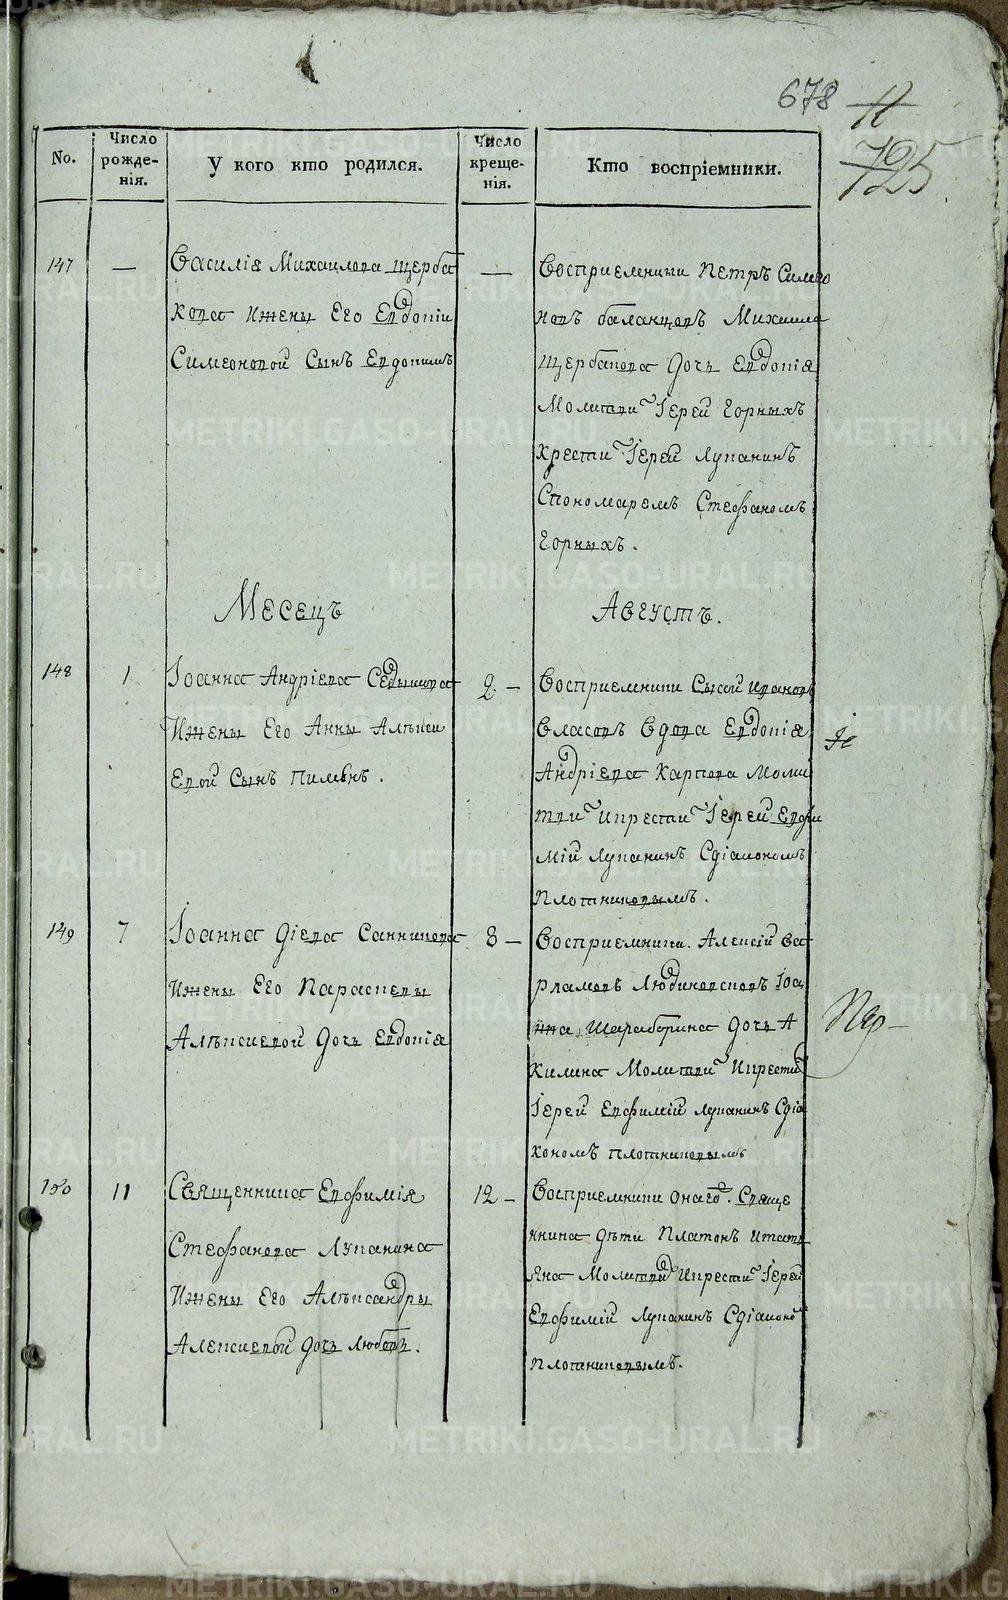 678
11
725
No.
Число рожде-нія.
У кого кто родился.
Число креще-нія.
Кто воспріемники.
147
—
Василія Михаилова щерба
кова Ижены Его Евдокіи
Симеоновой Сынъ Евдокимъ
—
Восприемники Петръ Симео
новъ баланцовъ Михаила
щербакова дочь Евдокія
Молитви Іерей Горныхъ
крести Іерей Лупанинъ
Спономаремъ Стефаномъ
Горныхъ.
Месецъ Августъ.
148
1
Іоанна Андріева
Ижены Его Анны Алѣкси
евой Сынъ Пимѣнъ.
2 –
Восприемники Сысой Ивановъ
Власовъ Вдова Евдокія
Андріева Карпова Моли
тви Икрести Іерей Евфи
мій Лупанинъ Сдіакономъ
Плотниковымъ.
149
7
Іоанна Діева Санникова
Ижены Его Параскевы
Алѣксиевой Дочь Евдокія
8 –
Восприемники. Алексій Ва
рламовъ Людиновсковъ Іоа
нна Шарабрина дочь А
килина Молитви Икрести
Іерей Евфимій Лупанинъ Сдіа
кономъ Плотниковымъ
150
11
Священника Евфимія
Стефанова Лупанина
Ижены Его Алѣксандры
Алексиевой дочь Любовь.
12 –
Восприемники онаго. Свяще
нника дѣти Платонъ Итатı
яна Молитви Икрести Іерей
Евфимій Лупанинъ Сдіаконо
Плотниковымъ.
METRIKI.GASO-URAL.RU